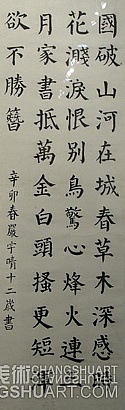 國破山河在城春草木深感時
花濺淚恨別鳥驚心烽火連三
月家書抵萬金白頭搔更短渾
欲不勝簪
辛卯春嚴宇晴十二歲書